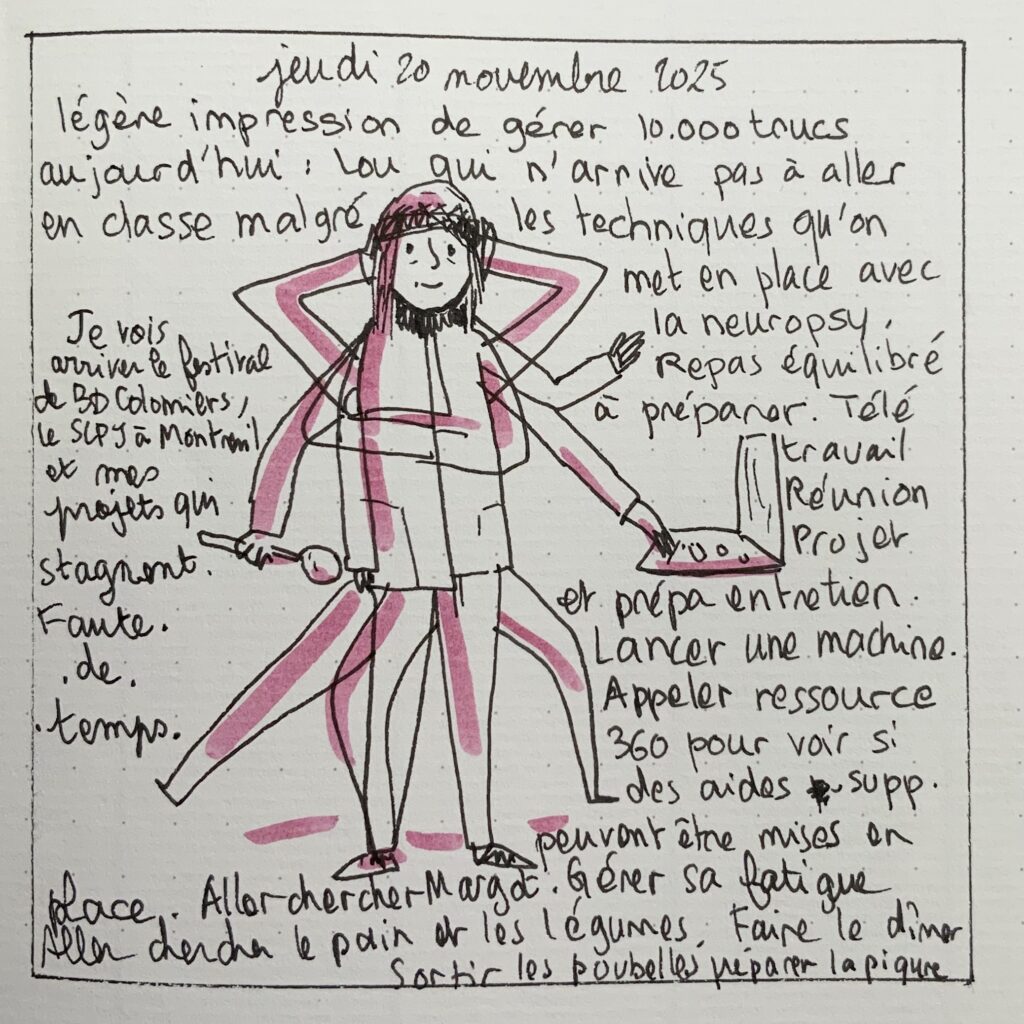 jeudi 20 novembre 2025
légère impression de gérer 10.000 trucs
aujourd'hui : Lou qui n'arrive pas à aller
en classe malgré les techniques qu'on
met en place avec
la neuropsy.
Repas équilibré
à préparer. Télé
travail
Réunion
Projet
et prépa entretien.
Lancer une machine.
Appeler ressource
360 pour voir si
des aides supp.
peuvent être mises en
place. Aller chercher Margot. Gérer sa fatigue
Aller chercher le pain et les légumes. Faire le dîner
Sortir les poubelles préparer la piqure
Je vois
arriver le festival
de BD Colomiers,
le SLPJ à Montreuil
et mes
projets qui
stagnent.
Faute.
.de.
.temps.